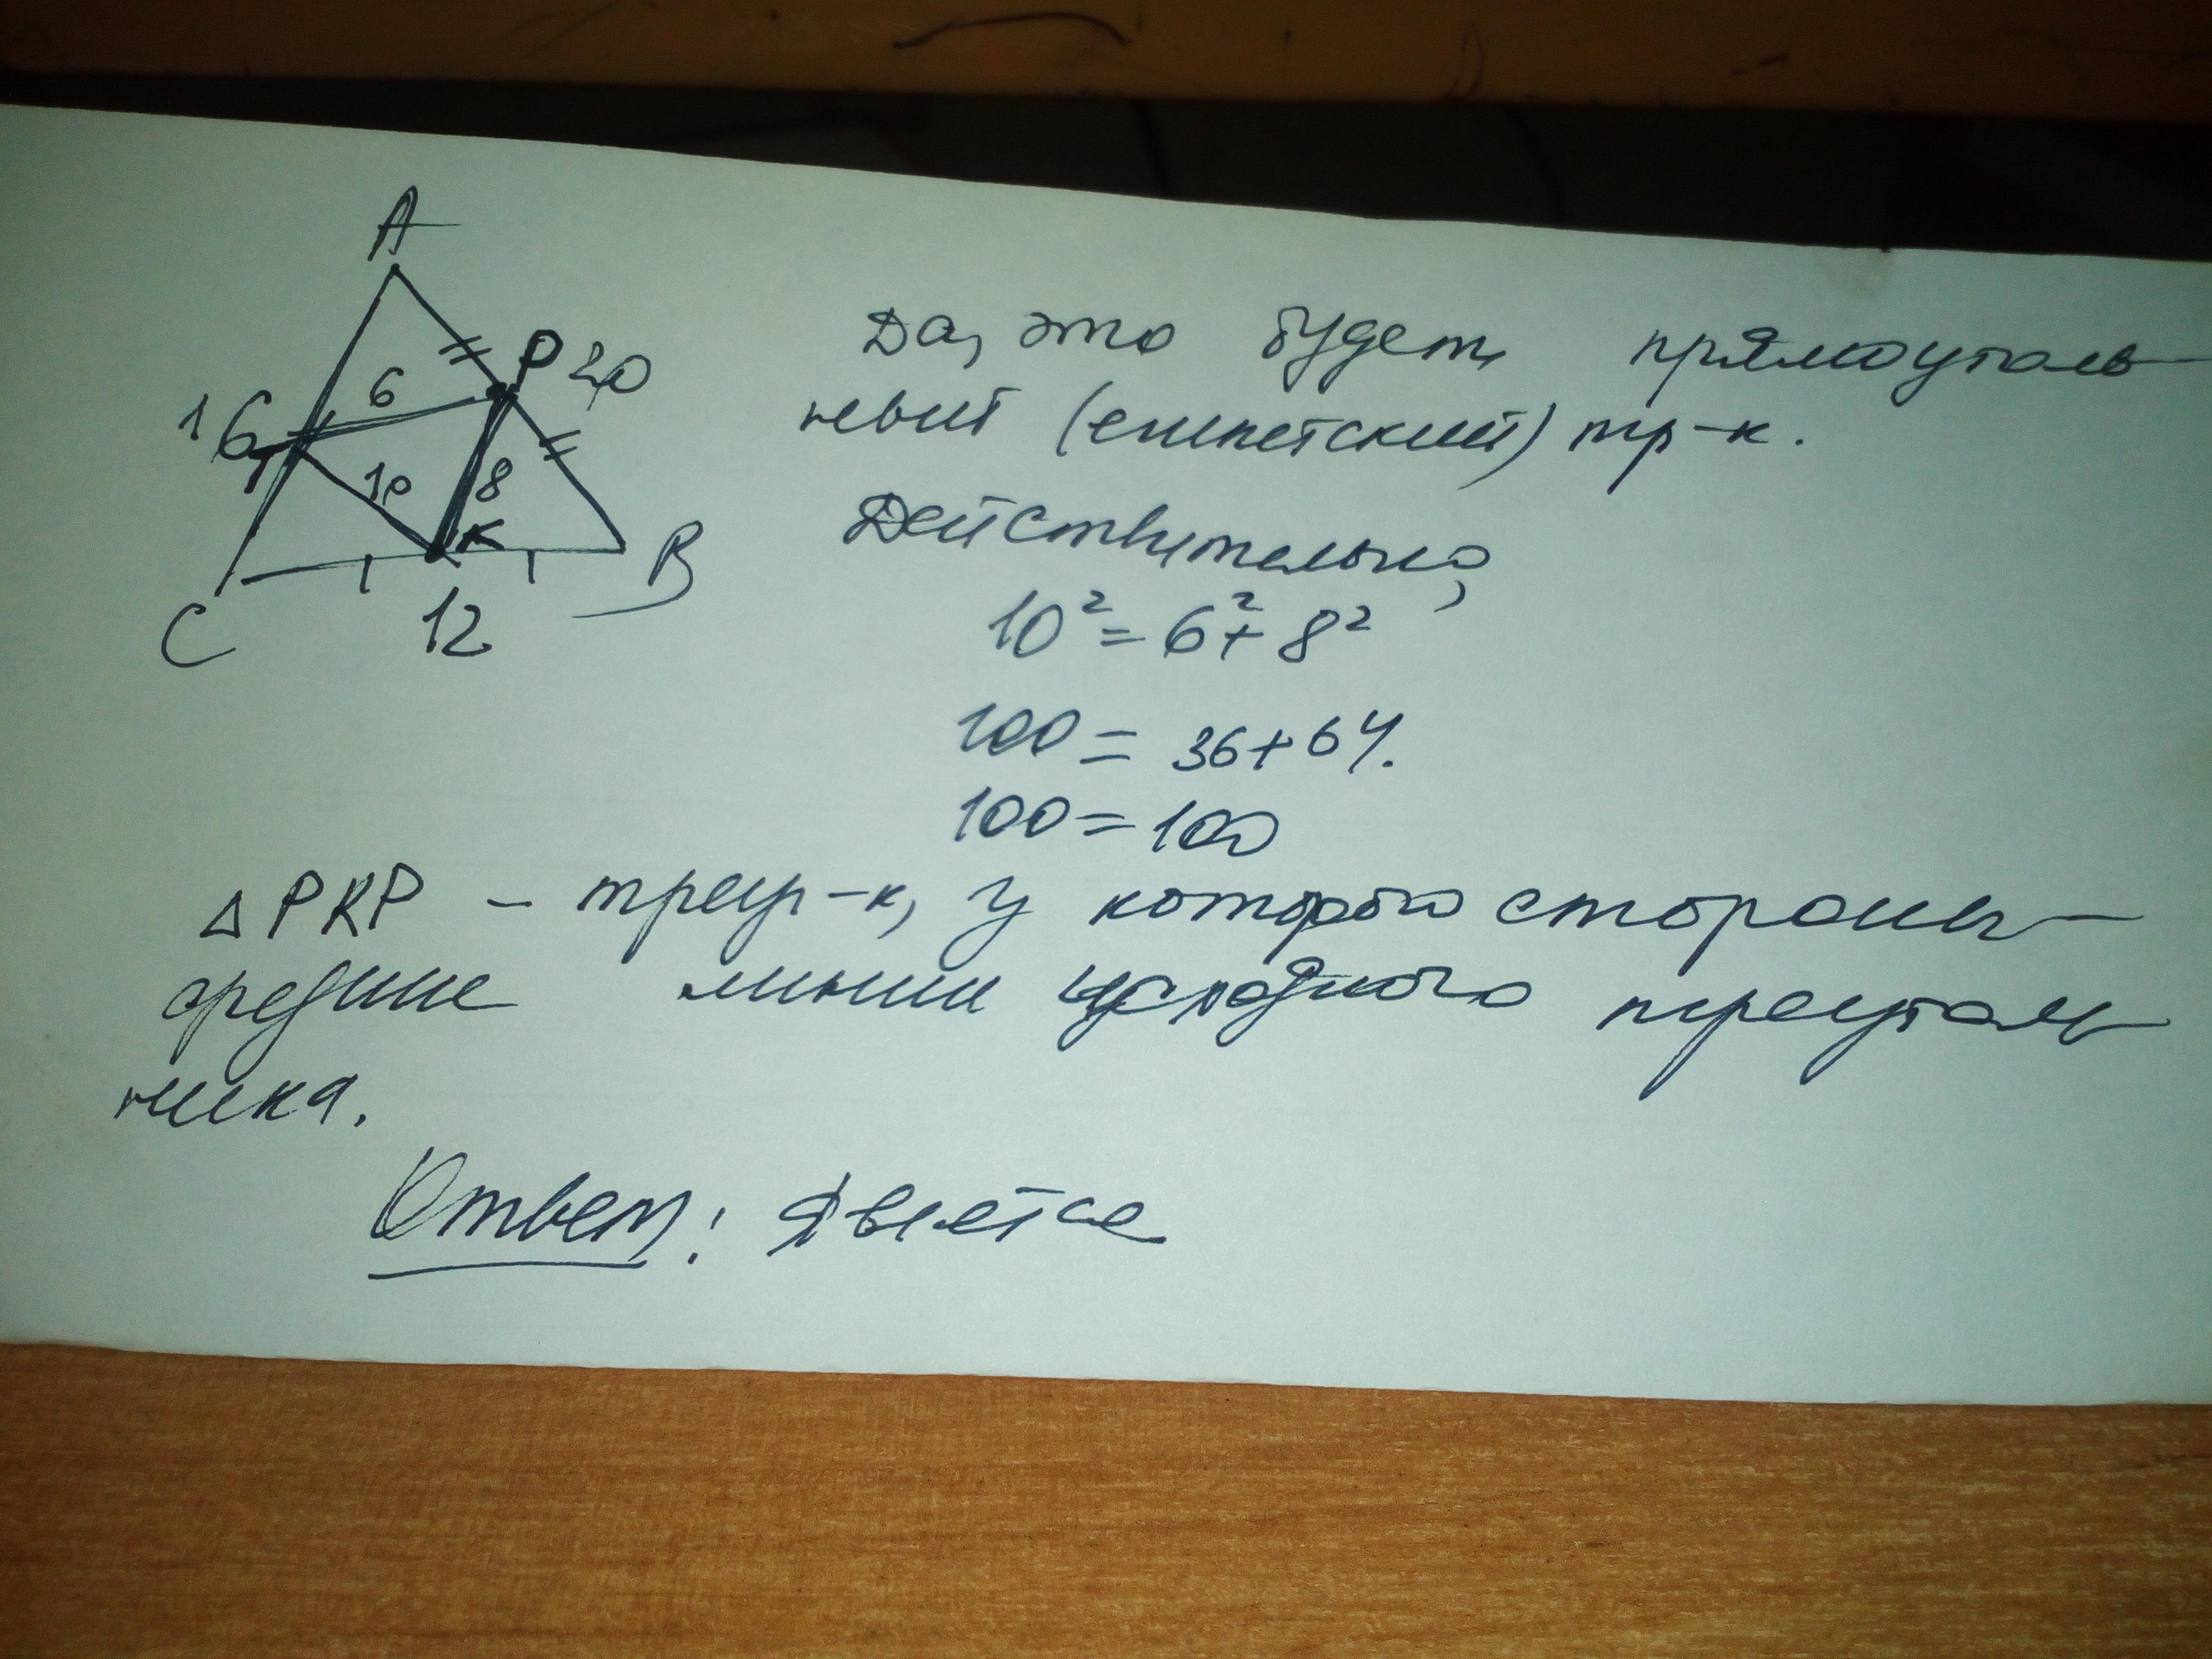 A
P 20
6
16
T
10
8
K
C
12
B
Да, это будет прямоуголь-
ный (египетский) тр-к.
Действительно,
10² = 6² + 8²
100 = 36 + 64.
100 = 100
△ PKP – треуг-к, у которого стороны –
средние линии исходного треуголь-
ника.
Ответ: является